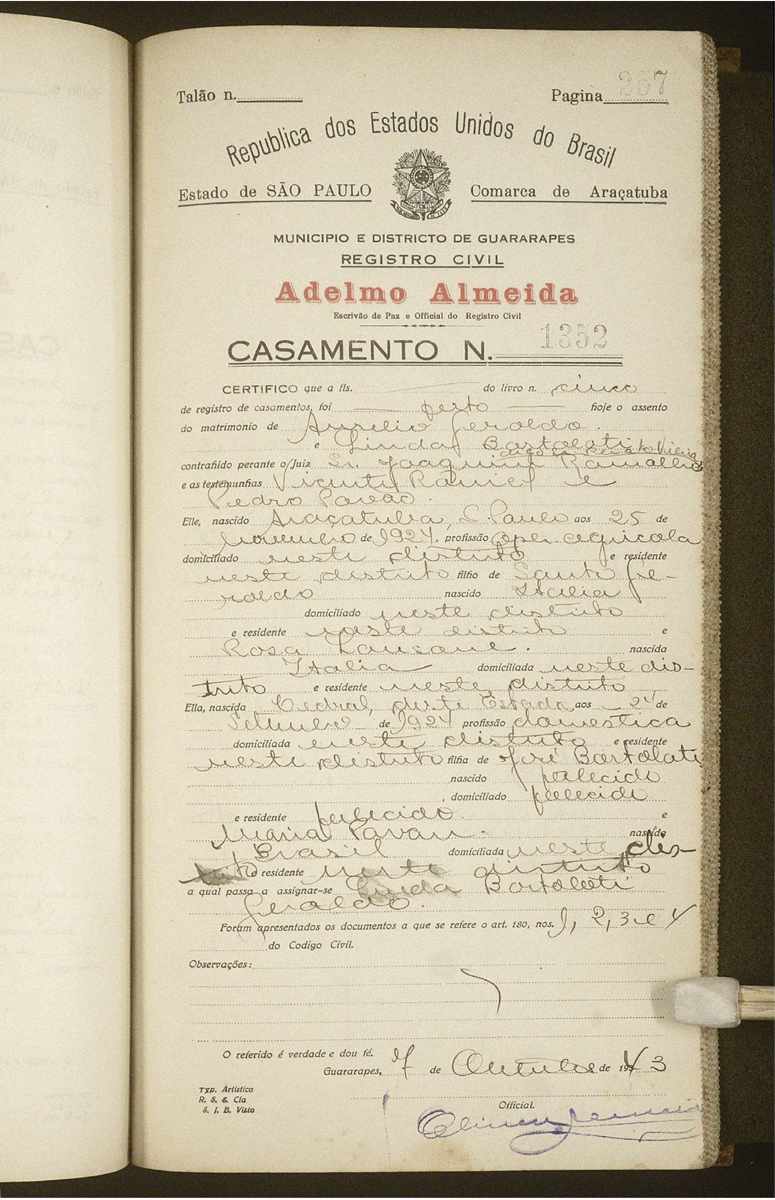 Talão n.
Pagina 267
Republica dos Estados Unidos do Brasil
Estado de SÃO PAULO Comarca de Araçatuba
MUNICIPIO E DISTRICTO DE GUARARAPES
REGISTRO CIVIL
Adelmo Almeida
Escrivão de Paz e Official do Registro Civil
CASAMENTO N. 1352
CERTIFICO que a fls. do livro n. cinco
de registro de casamentos, foi feito hoje o assento
do matrimonio de Aurelio Geraldo.
e Linda Bortolati
contrahido perante o Juiz Sr. Joaquim Ramalho
e as testemunhas Vicente Ramel e
Pedro Pavão.
Elle, nascido Araçatuba, S. Paulo aos 25 de
Novembro de 1924 profissão oper. agricola
domiciliado neste distrito e residente
neste distrito filho de Santo Ge-
raldo nascido Italia
domiciliado neste distrito
e residente neste distrito e
Rosa Lansone. nascida
Italia domiciliada neste dis-
trito e residente neste distrito
Ella, nascida Cedral, deste Estado aos 24 de
Setembro de 1924 profissão domestica
domiciliada neste distrito e residente
neste distrito filha de José Bortolati
nascido falecido
domiciliado falecido
e residente falecido. e
Maria Pavan. nascida
Brasil domiciliada neste dis-
trito e residente neste distrito
a qual passa a assignar-se Linda Bortolati
Geraldo.
Foram apresentados os documentos a que se refere o art. 180, nos. 1, 2, 3 e 4
do Codigo Civil.
Observações:
O referido é verdade e dou fé.
Guararapes, 7 de Outubro de 1943
Typ. Artistica
R. S. & Cia
S. J. B. Vista
Official.